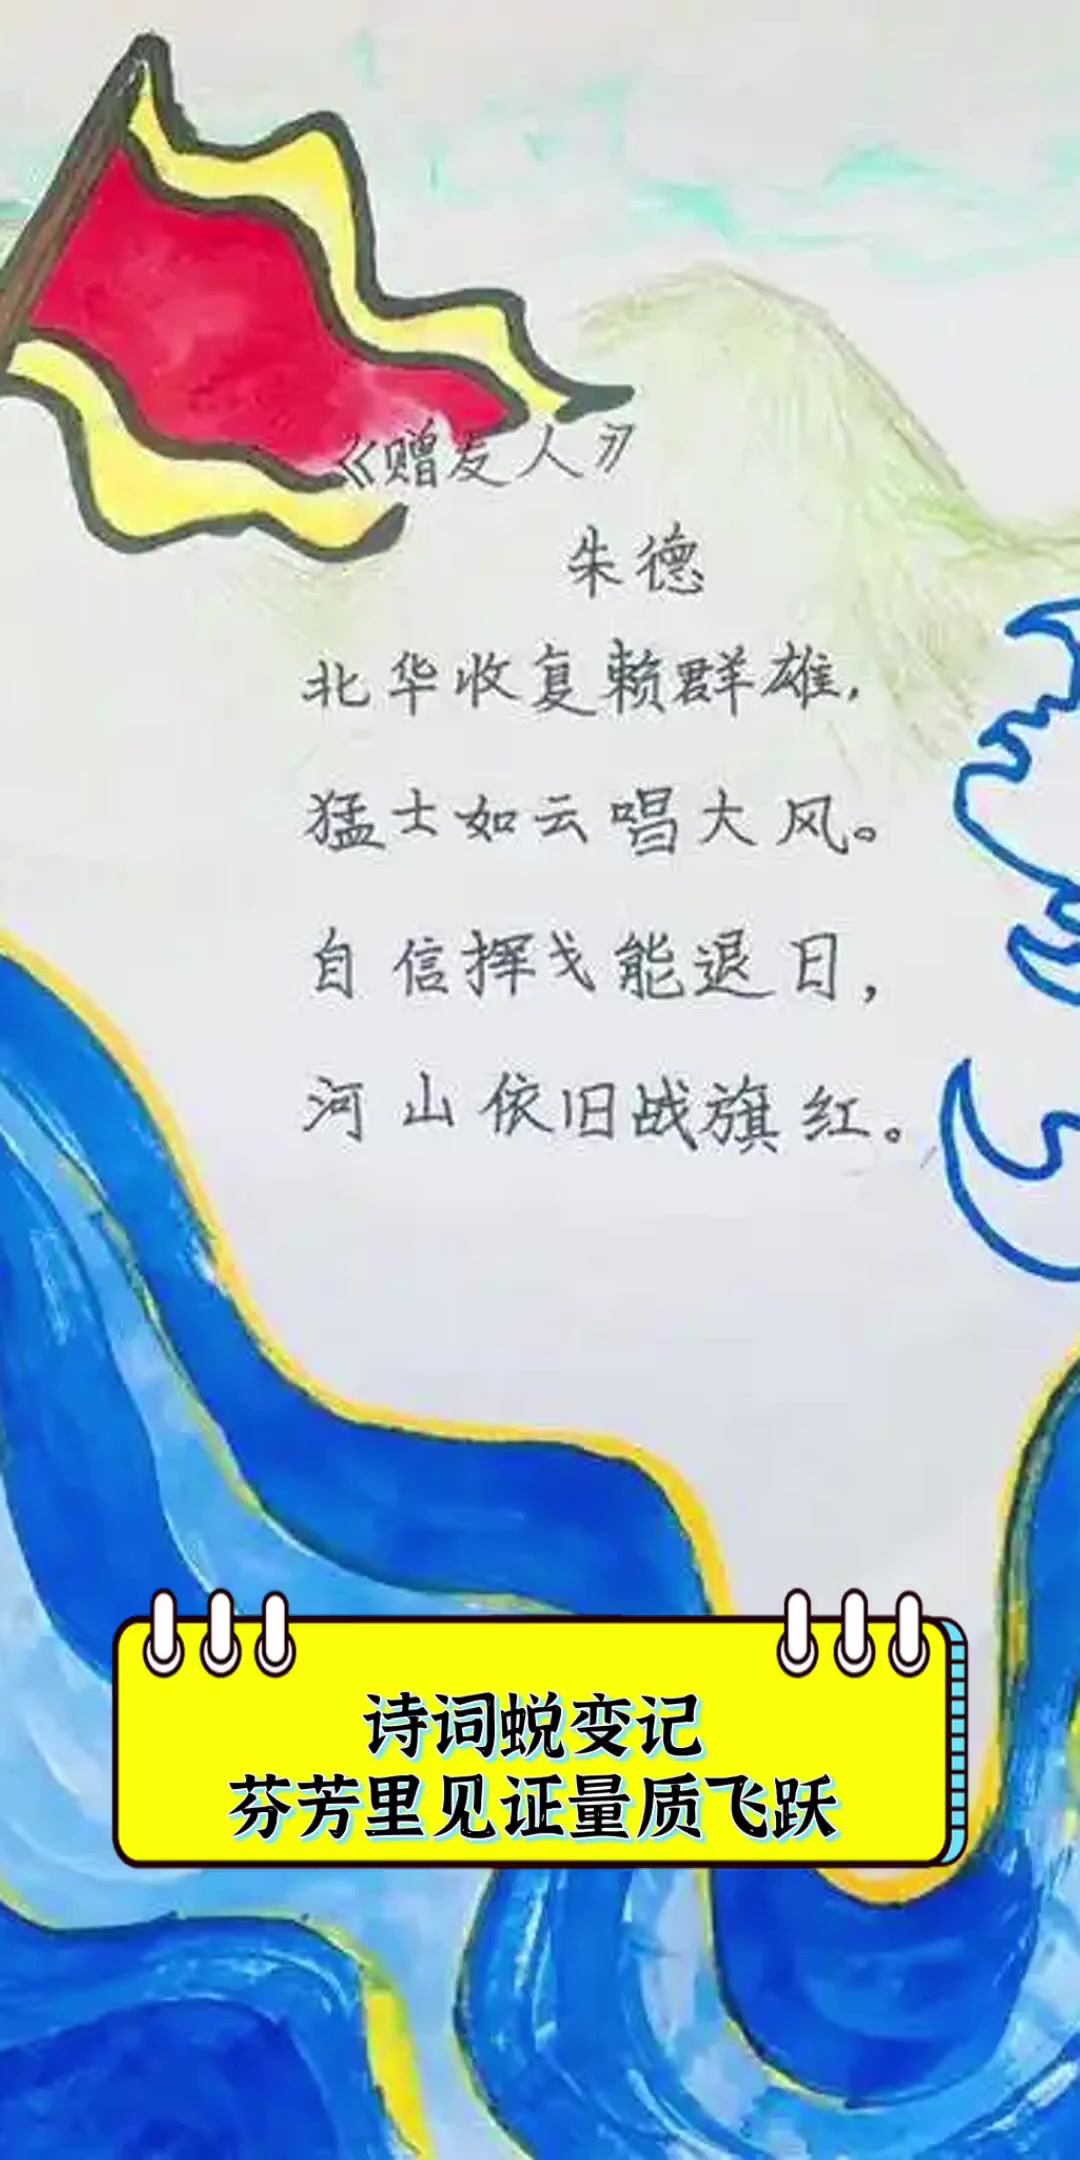 《赠友人》
朱德
北华收复赖群雄，
猛士如云唱大风。
自信挥戈能退日，
河山依旧战旗红。
诗词蜕变记
芬芳里见证量质飞跃